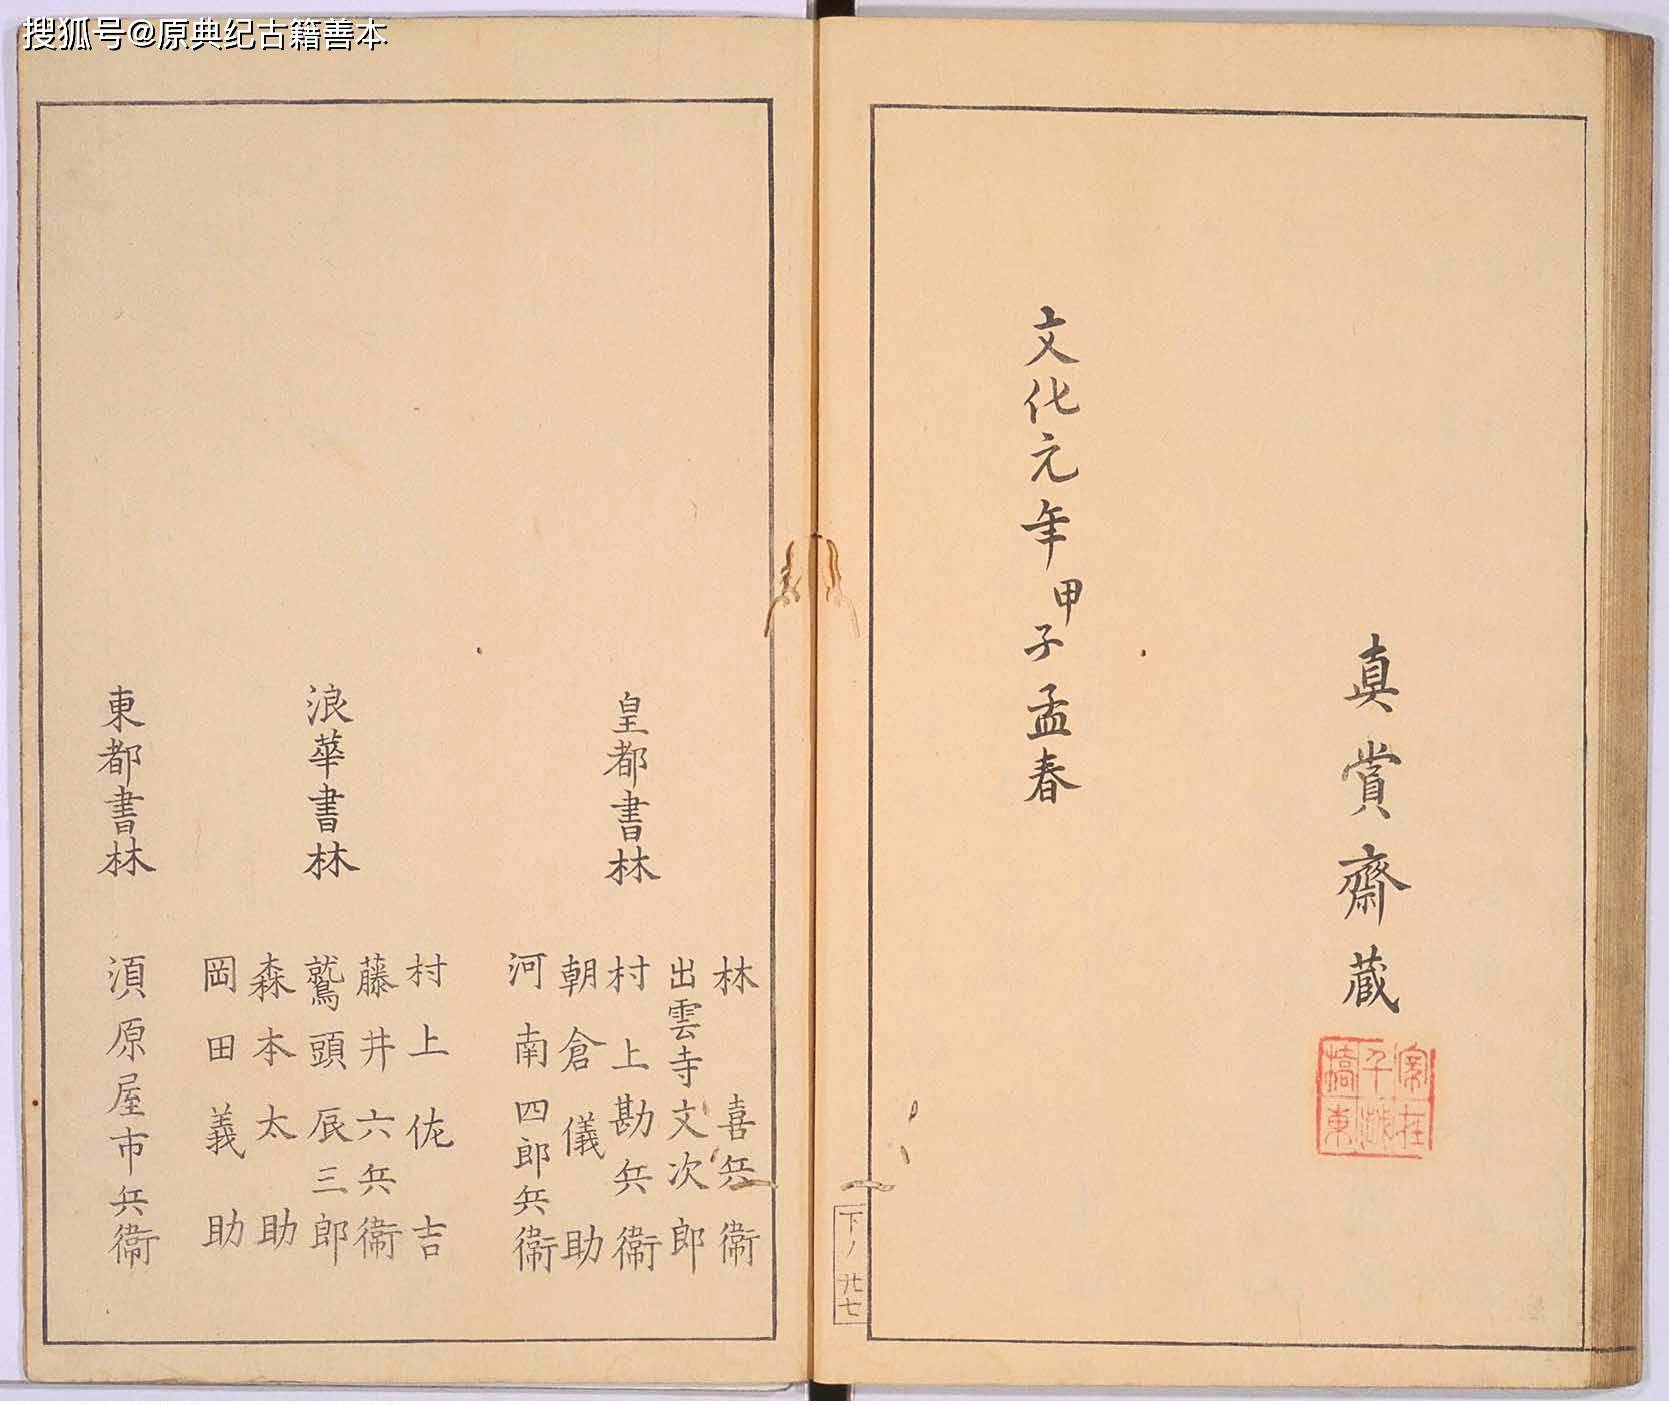 搜狐号@原典纪古籍善本
真賞齋蔵
文化元年甲子孟春
下ノ廿七
皇都書林
林喜兵衞
出雲寺文次郎
村上勘兵衞
朝倉儀助
河南四郎兵衞
浪華書林
村上佐吉
藤井六兵衞
鷲頭辰三郎
森本太助
岡田義助
東都書林
須原屋市兵衞